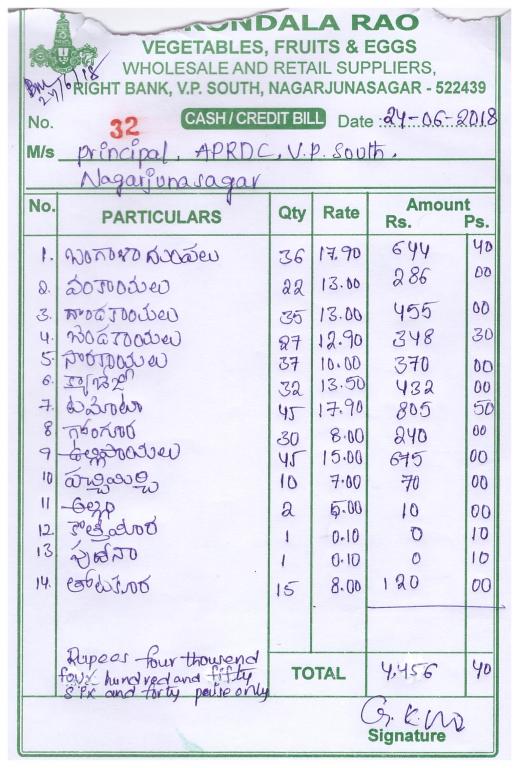 RONDALA RAO
VEGETABLES, FRUITS & EGGS
WHOLESALE AND RETAIL SUPPLIERS,
RIGHT BANK, V.P. SOUTH, NAGARJUNASAGAR - 522439
No. 32 CASH / CREDIT BILL Date : 24-06-2018
M/s principal, APRDC, V.P. South,
Nagarjunasagar
No. PARTICULARS Qty Rate Amount Rs. Ps.
1. బంగాళాదుంపలు 36 17.90 644 40
2. వంకాయలు 22 13.00 286 00
3. దొండకాయలు 35 13.00 455 00
4. బెండకాయలు 27 12.90 348 30
5. సొరకాయలు 37 10.00 370 00
6. క్యాబేజి 32 13.50 432 00
7. టమాటా 45 17.90 805 50
8 గోంగూర 30 8.00 240 00
9 ఉల్లిపాయలు 45 15.00 675 00
10 పచ్చిమిర్చి 10 7.00 70 00
11 అల్లం 2 5.00 10 00
12. కొత్తిమీర 1 0.10 0 10
13 పుదీనా 1 0.10 0 10
14. తోటకూర 15 8.00 120 00
Rupees four thousend
four hundred and fifty
six and forty paise only
TOTAL 4,456 40
Signature